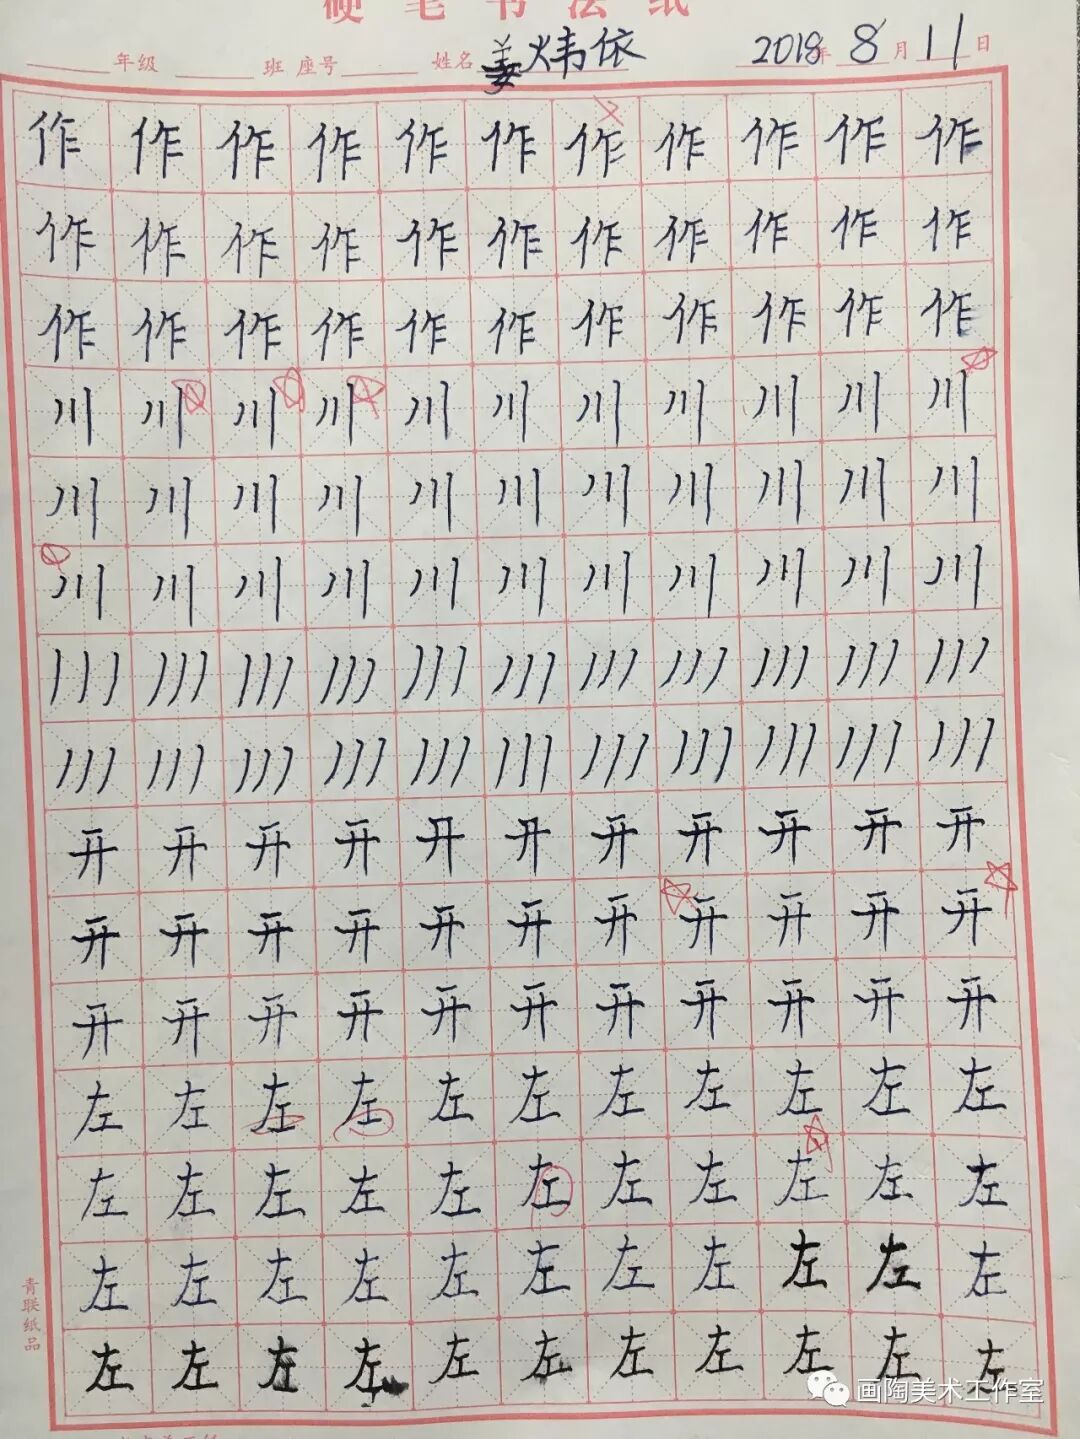 硬笔书法纸
年级 班 座号 姓名 姜炜依 2018年8月11日
作作作作作作作作作作作
作作作作作作作作作作作
作作作作作作作作作作作
川川川川川川川川川川川
川川川川川川川川川川川
川川川川川川川川川川川
开开开开开开开开开开开
开开开开开开开开开开开
开开开开开开开开开开开
左左左左左左左左左左左
左左左左左左左左左左左
左左左左左左左左左左左
左左左左左左左左左左左
青联纸品
画陶美术工作室